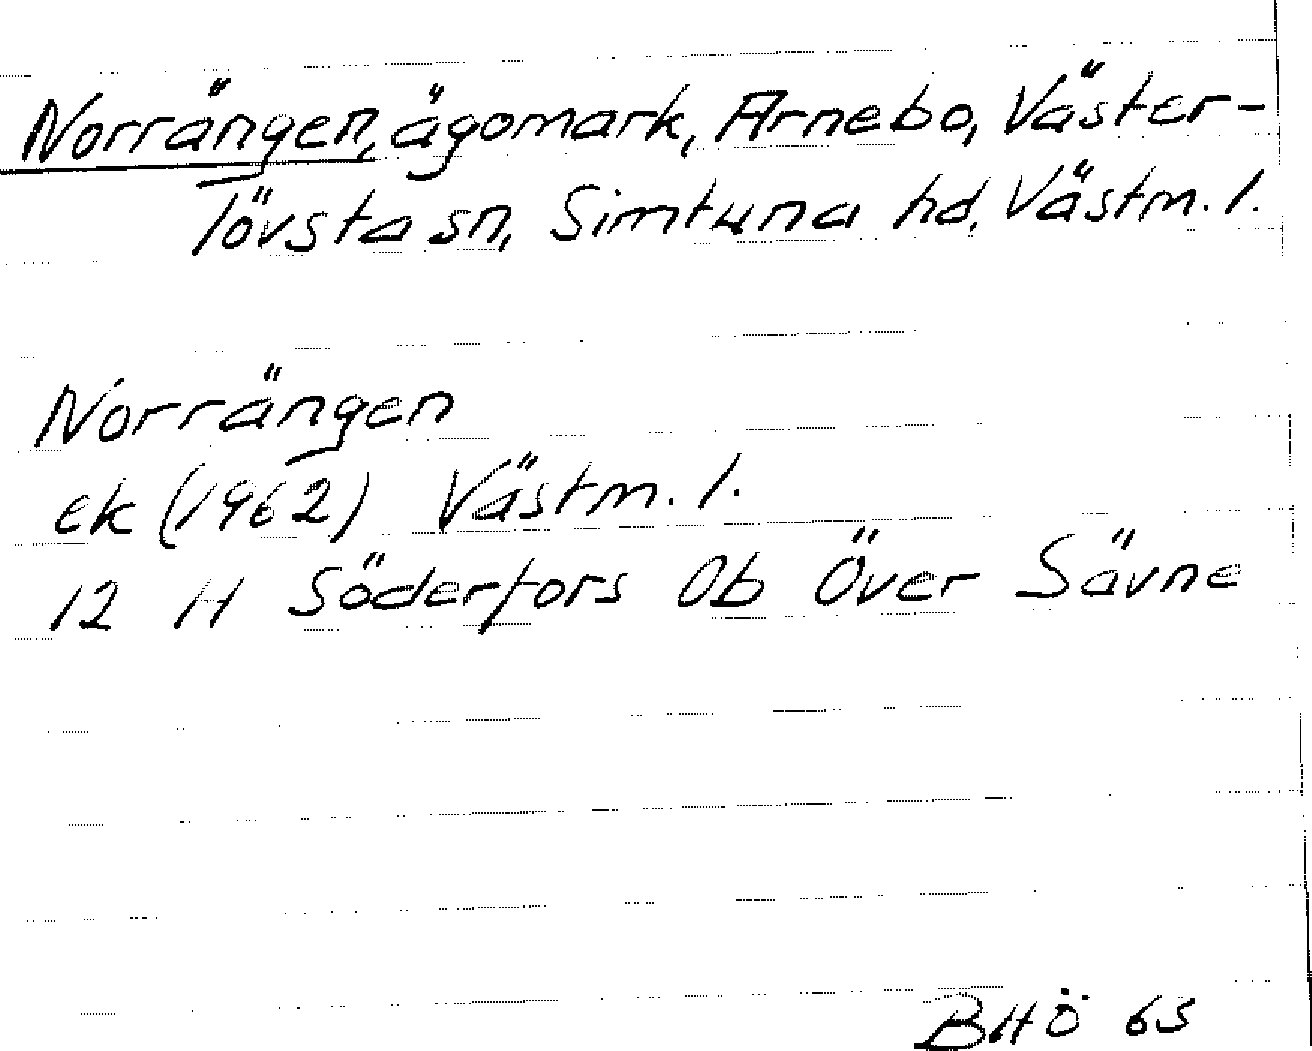 Norrängen, ägomark, Arnebo, Väster-
lövsta sn, Simtuna hd, Västm. l.
Norrängen
ek (1962) Västm. l.
12 H Söderfors 0b Över Sävne
BHÖ 65